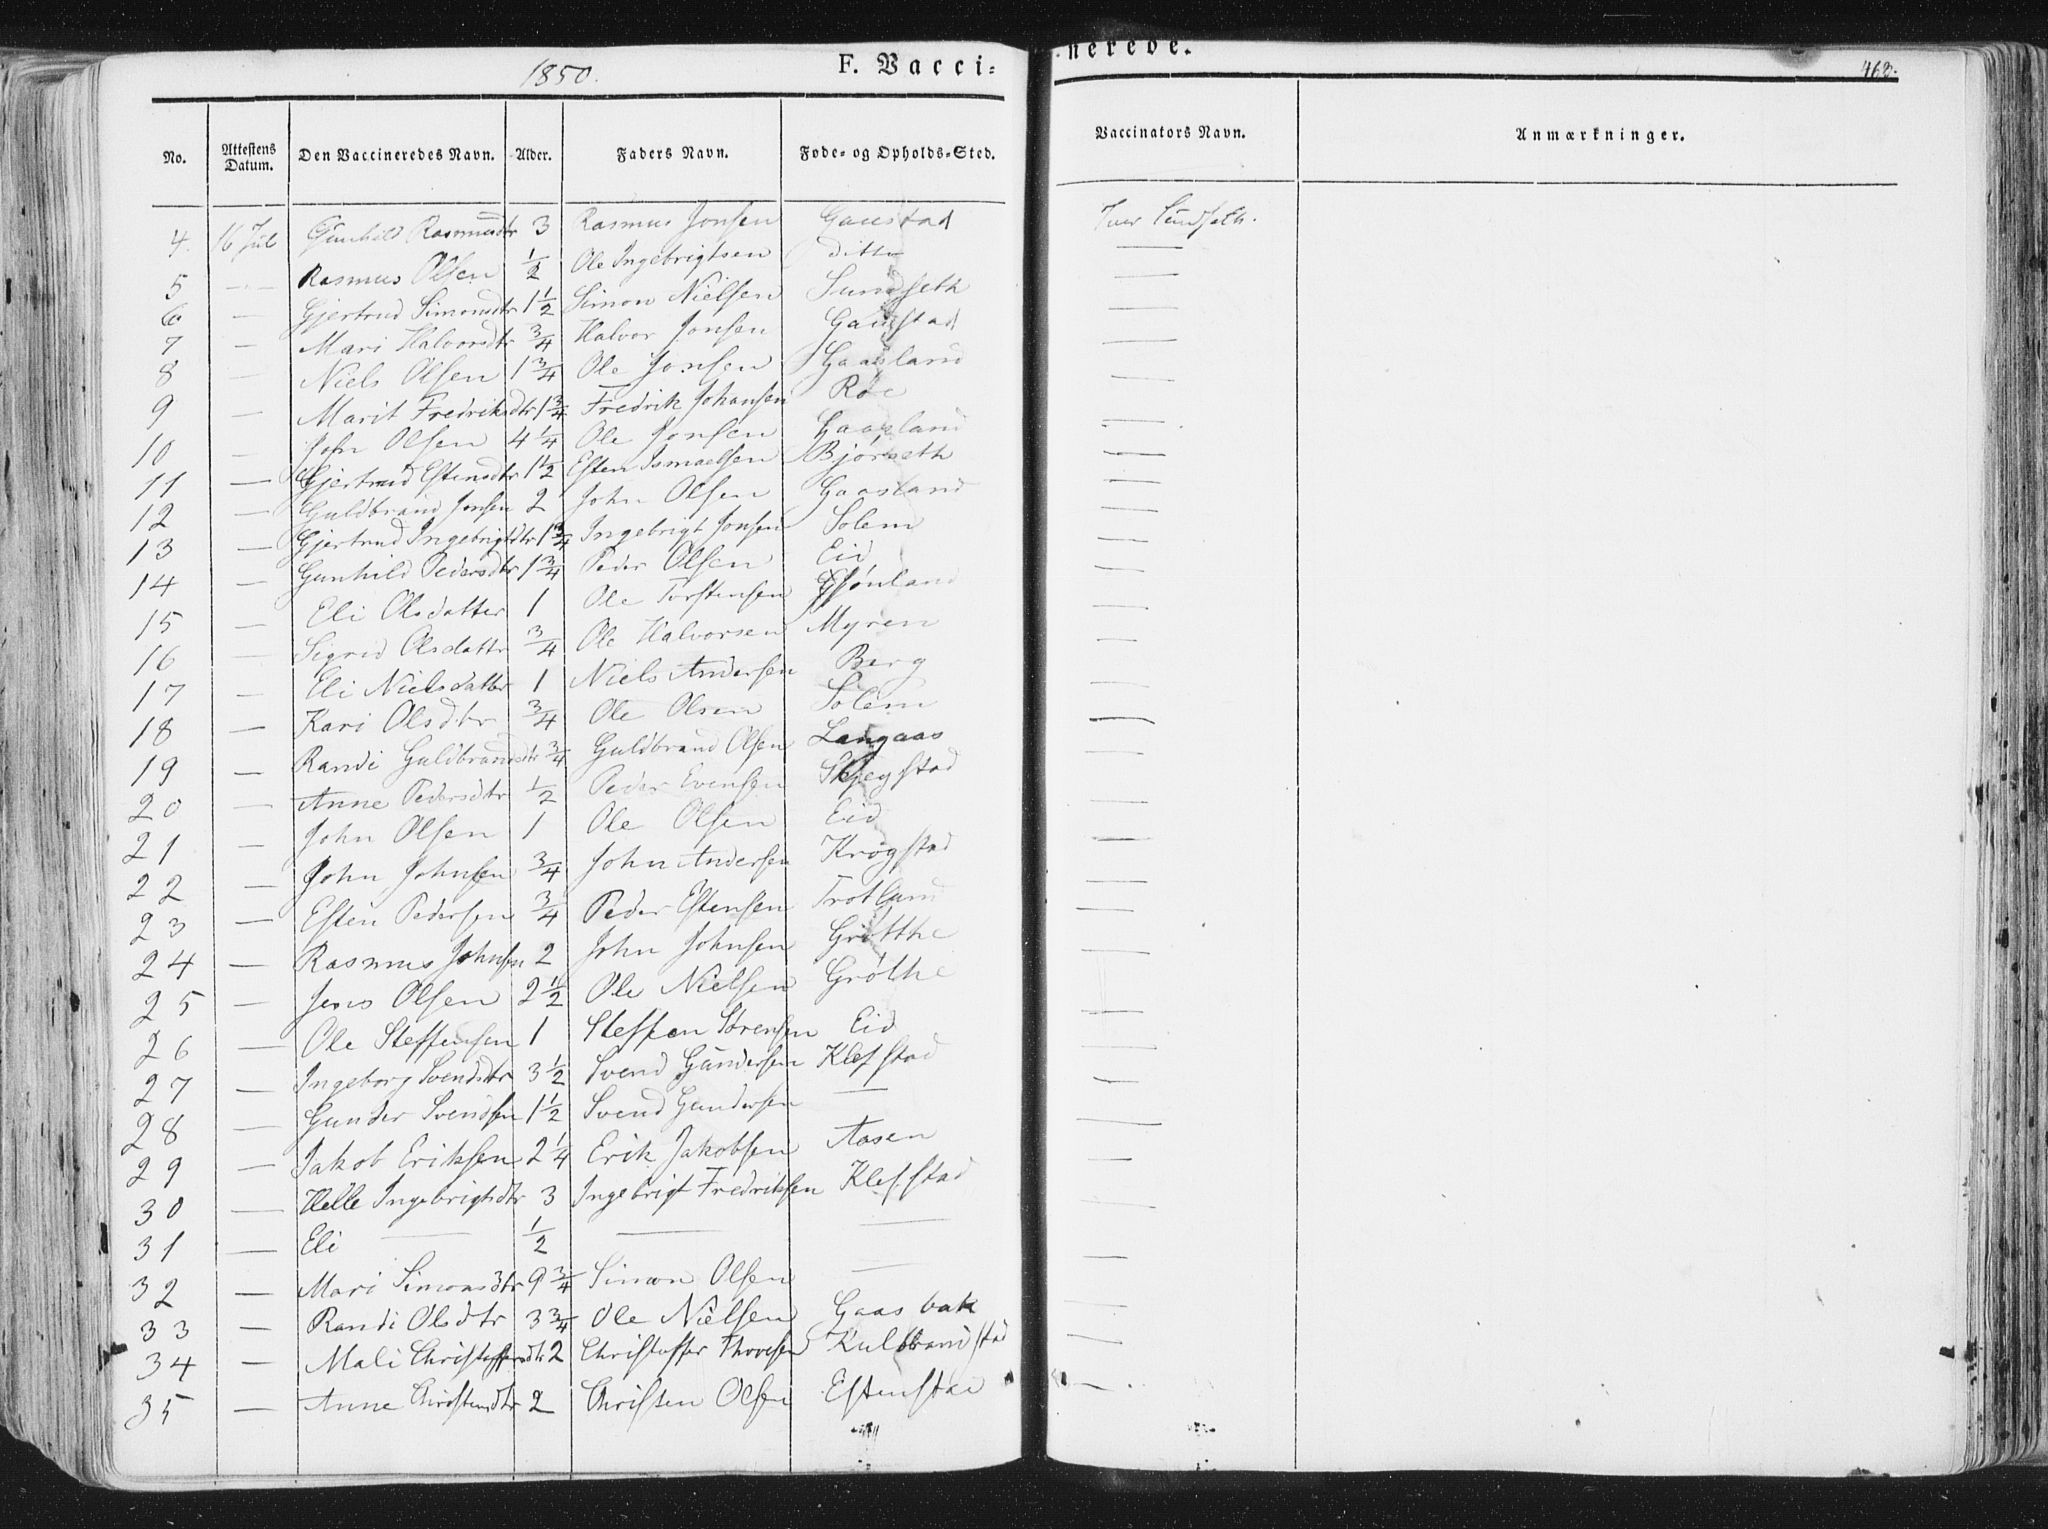 1850. F. Vacci- nerede. 468.
No. Attestens Datum. Den Vaccineredes Navn. Alder. Faders Navn. Føde- og Opholds-Sted. Vaccinators Navn. Anmærkninger.
4. 16 Jul Gunhild Rasmusdtr 3 Rasmus Jonsen Gaustad Iver Sundseth.
5 — Rasmus Olsen 1/2 Ole Ingebrigtsen ditto —
6 — Gjertrud Simonsdtr 1 1/2 Simon Nielsen Sundseth —
7 — Mari Halvorsdtr 3/4 Halvor Jonsen Gaustad —
8 — Niels Olsen 1 3/4 Ole Jonsen Gaasland —
9 — Marit Fredriksdtr 1 3/4 Fredrik Johansen Roe —
10 — John Olsen 4 1/4 Ole Jonsen Gaasland —
11 — Gjertrud Estensdtr 1 1/2 Esten Ismaelsen Bjørseth —
12 — Guldbrand Jonsen 2 John Olsen Gaasland —
13 — Gjertrud Ingebrigtdtr 1 3/4 Ingebrigt Jonsen Solem —
14 — Gunhild Pedersdtr 1 3/4 Peder Olsen Eid —
15 — Eli Olsdatter 1 Ole Torstensen —
16 — Sigrid Olsdattr 3/4 Ole Halvorsen Myren —
17 — Eli Nielsdatter 1 Niels Andersen Berg —
18 — Kari Olsdtr 3/4 Ole Olsen Solem —
19 — Randi Guldbrandsdtr 3/4 Guldbrand Olsen Langaas —
20 — Anne Pedersdtr 1/2 Peder Evensen Skjegstad —
21 — John Olsen 1 Ole Olsen Eid —
22 — John Johnsen 3/4 John Andersen Krogstad —
23 — Esten Pedersen 3/4 Peder Estensen Trotland —
24 — Rasmus Johnsen 2 John Johnsen Grøtthe —
25 — Jens Olsen 2 1/2 Ole Nielsen Grøthe —
26 — Ole Steffensen 1 Steffen Sørensen Eid —
27 — Ingeborg Svendsdtr 3 1/2 Svend Gundersen Klefstad —
28 — Gunder Svendsen 1 1/2 Svend Gundersen — —
29 — Jakob Eriksen 2 1/4 Erik Jakobsen Aasen —
30 — Helle Ingebrigtsdtr 3 Ingebrigt Fredriksen Klefstad —
31 — Eli — 1/2 — — —
32 — Mari Simonsdtr 9 3/4 Simon Olsen — —
33 — Randi Olsdtr 3 3/4 Ole Nielsen Gaasbak —
34 — Mali Christoffersdtr 2 Christoffer Thoresen Kulbrandstad —
35 — Anne Christensdtr 2 Christen Olsen Estenstad —